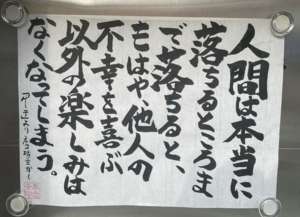 人間は本当に
落ちるところま
で落ちると、
もはや、他人の
不幸を喜ぶ
以外の楽しみは
なくなってしまう。